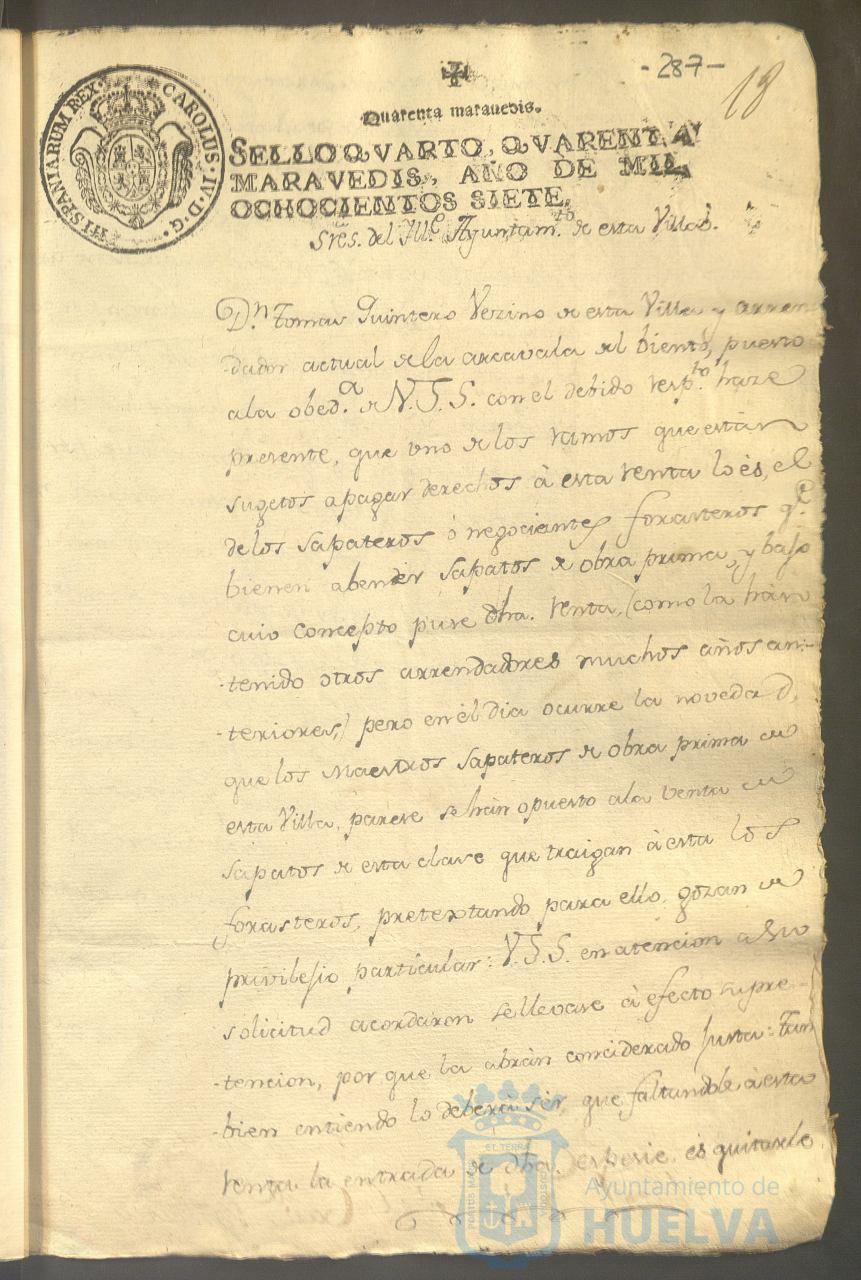 -287-
18
HISPANIARUM REX. CAROLUS. IV. D. G.
Quarenta maravedis.
SELLO QVARTO, QVARENTA
MARAVEDIS, AÑO DE MIL
OCHOCIENTOS SIETE.
Sres. del Ille. Ayuntamto. de esta Villa.
Dn. Tomas Quintero Vezino de esta Villa y arren
dador actual de la arcavala del biento, puesto
a la obeda. de V.S.S. con el debido respto. haze
presente, que uno de los ramos que están
sugetos a pagar derechos à esta renta lo ès, el
de los sapateros ó negociantes forasteros qe.
bienen a bender sapatos de obra prima, y bajo
cuio concepto puse dha. renta, (como la hàn
tenido otros arrendadores muchos años an-
teriores,) pero en èl dia ocurre la novedad,
que los Maestros sapateros de obra prima de
esta Villa, parese se hàn opuesto a la venta de
sapatos de esta clase que traigan à esta los
forasteros, pretextando para ello, gozan de
privilejio particular: V.S.S. en atencion a su
solicitud acordaron se llevase à efecto su pre-
tencion, por que la abràn conciderado justa: Tan
bien entiendo lo deberà sèr, que faltandole à esta
renta la entrada de dha. espesie, és quitarle
EL TERRÆ
CUSTODIA
Ayuntamiento de
HUELVA